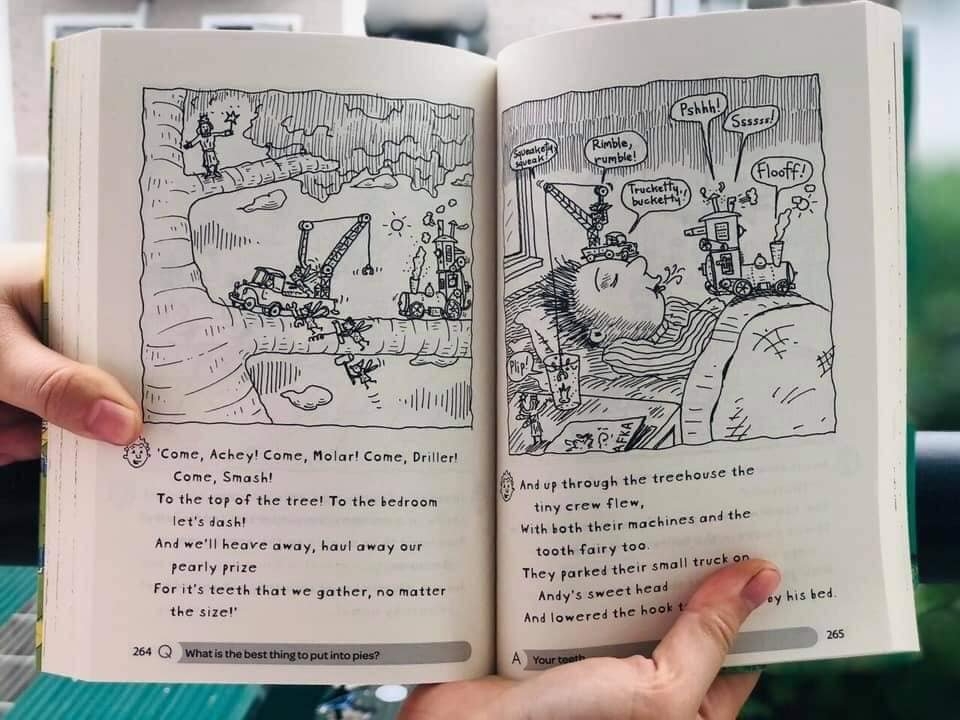 'Come, Achey! Come, Molar! Come, Driller!
Come, Smash!
To the top of the tree! To the bedroom
let's dash!
And we'll heave away, haul away our
pearly prize
For it's teeth that we gather, no matter
the size!'
264 Q What is the best thing to put into pies?
Squeakety
squeak!
Rimble,
rumble!
Pshhh!
Ssssss!
Trucketty,
bucketty!
Flooff!
Plip!
And up through the treehouse the
tiny crew flew,
With both their machines and the
tooth fairy too.
They parked their small truck on
Andy's sweet head
And lowered the hook
by his bed.
A Your teeth
265